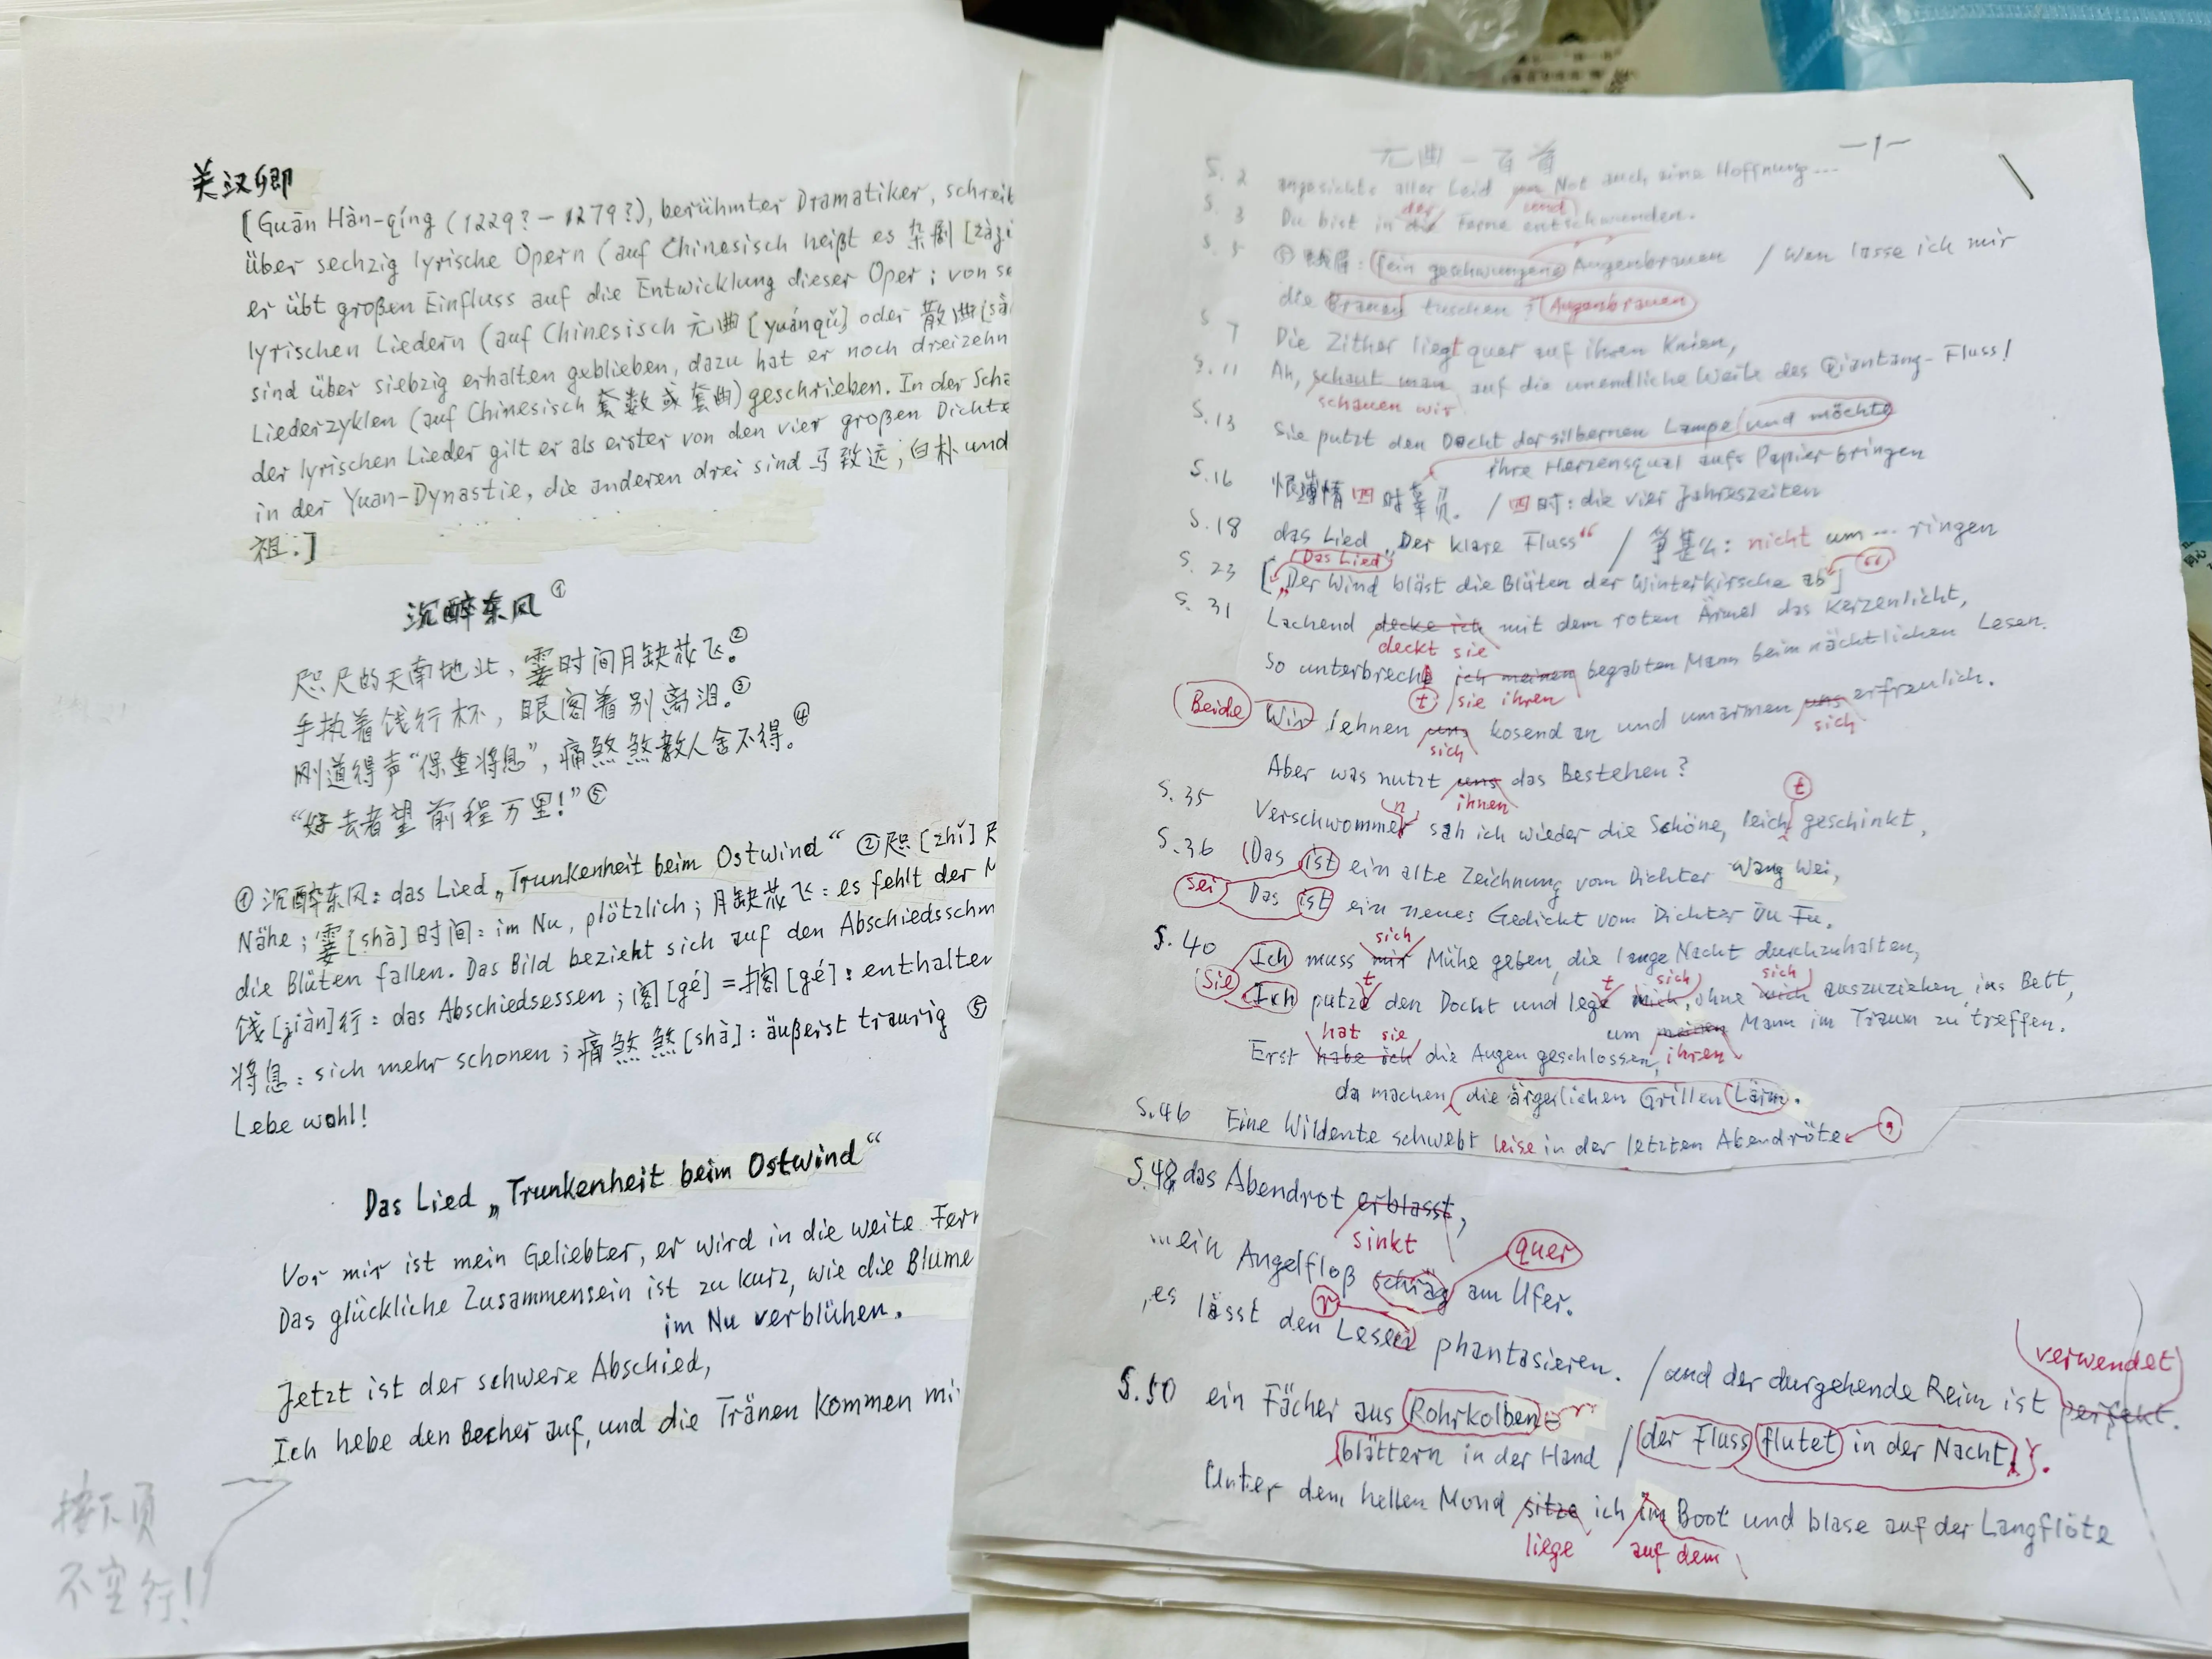 关汉卿
[Guān Hàn-qíng (1229?-1279?), berühmter Dramatiker, schreib
über sechzig lyrische Opern (auf Chinesisch heißt es 杂剧 [zájì
er übt großen Einfluss auf die Entwicklung dieser Oper; von se
lyrischen Liedern (auf Chinesisch 元曲 [yuánqǔ] oder 散曲 [sǎ
sind über siebzig erhalten geblieben, dazu hat er noch dreizehn
Liederzyklen (auf Chinesisch 套数或套曲) geschrieben. In der Scha
der lyrischen Lieder gilt er als erster von den vier großen Dichte
in der Yuan-Dynastie, die anderen drei sind 马致远; 白朴 und
祖.]
沉醉东风①
咫尺的天南地北，霎时间月缺花飞。②
手执着饯行杯，眼阁着别离泪。③
刚道得声“保重将息”，痛煞煞教人舍不得。④
“好去者望前程万里！”⑤
①沉醉东风: das Lied „Trunkenheit beim Ostwind“ ②咫[zhǐ]尺
Nähe; 霎[shà]时间: im Nu, plötzlich; 月缺花飞: es fehlt der M
die Blüten fallen. Das Bild bezieht sich auf den Abschiedsschm
饯[jiàn]行: das Abschiedsessen; 阁[gé]=搁[gé]: enthalten
将息: sich mehr schonen; 痛煞煞[shà]: äußerst traurig ⑤
Lebe wohl!
Das Lied „Trunkenheit beim Ostwind“
Vor mir ist mein Geliebter, er wird in die weite Fern
Das glückliche Zusammensein ist zu kurz, wie die Blume
im Nu verblühen.
Jetzt ist der schwere Abschied,
Ich hebe den Becher auf, und die Tränen kommen mi
接下页
不空行!
元曲一百首 -1-
S. 2 angesichts aller Leid um Not auch eine Hoffnung...
und
S. 3 Du bist in die Ferne entschwunden.
der
S. 5 fein geschwungene Augenbrauen / Wen lasse ich mir
die Brauen tuschen? Augenbrauen
S. 7 Die Zither liegt quer auf ihren Knien,
S. 11 Ah, schaut man auf die unendliche Weite des Qiantang-Fluss!
schauen wir
S. 13 Sie putzt den Docht der silbernen Lampe und möchte
ihre Herzensqual aufs Papier bringen
S. 16 恨薄情四时辜负. / 四时: die vier Jahreszeiten
S. 18 das Lied „Der klare Fluss“ / 争甚么: nicht um ... ringen
Das Lied
S. 23 [„Der Wind bläst die Blüten der Winterkirsche ab] “
S. 31 Lachend decke ich mit dem roten Ärmel das Kerzenlicht,
deckt sie
So unterbrech ich meinen begabten Mann beim nächtlichen Lesen.
t sie ihren
Beide Wir lehnen uns kosend an und umarmen uns erfreulich.
sich sich
Aber was nutzt uns das Bestehen?
ihnen
S. 35 Verschwommer sah ich wieder die Schöne, leich geschinkt,
n t
S. 36 Das ist ein alte Zeichnung vom Dichter Wang Wei,
sei Das ist ein neues Gedicht vom Dichter Du Fu.
S. 40 Ich muss mir Mühe geben, die lange Nacht durchzuhalten,
sich
Sie Ich putze den Docht und lege mich, ohne mich auszuziehen, ins Bett,
t t sich sich
um meinen Mann im Traum zu treffen.
hat sie
Erst habe ich die Augen geschlossen, ihren
da machen die ärgerlichen Grillen Lärm.
S. 46 Eine Wildente schwebt leise in der letzten Abendröte
S. 48 das Abendrot erblasst,
sinkt
...ein Angelfloß schräg am Ufer.
quer
,es lässt den Lesen phantasieren. / und der durgehende Reim ist perfekt.
r verwendet
S. 50 ein Fächer aus Rohrkolben-
blättern in der Hand / der Fluss flutet in der Nacht.
Unter dem hellen Mond sitze ich im Boot und blase auf der Langflöte
liege auf dem